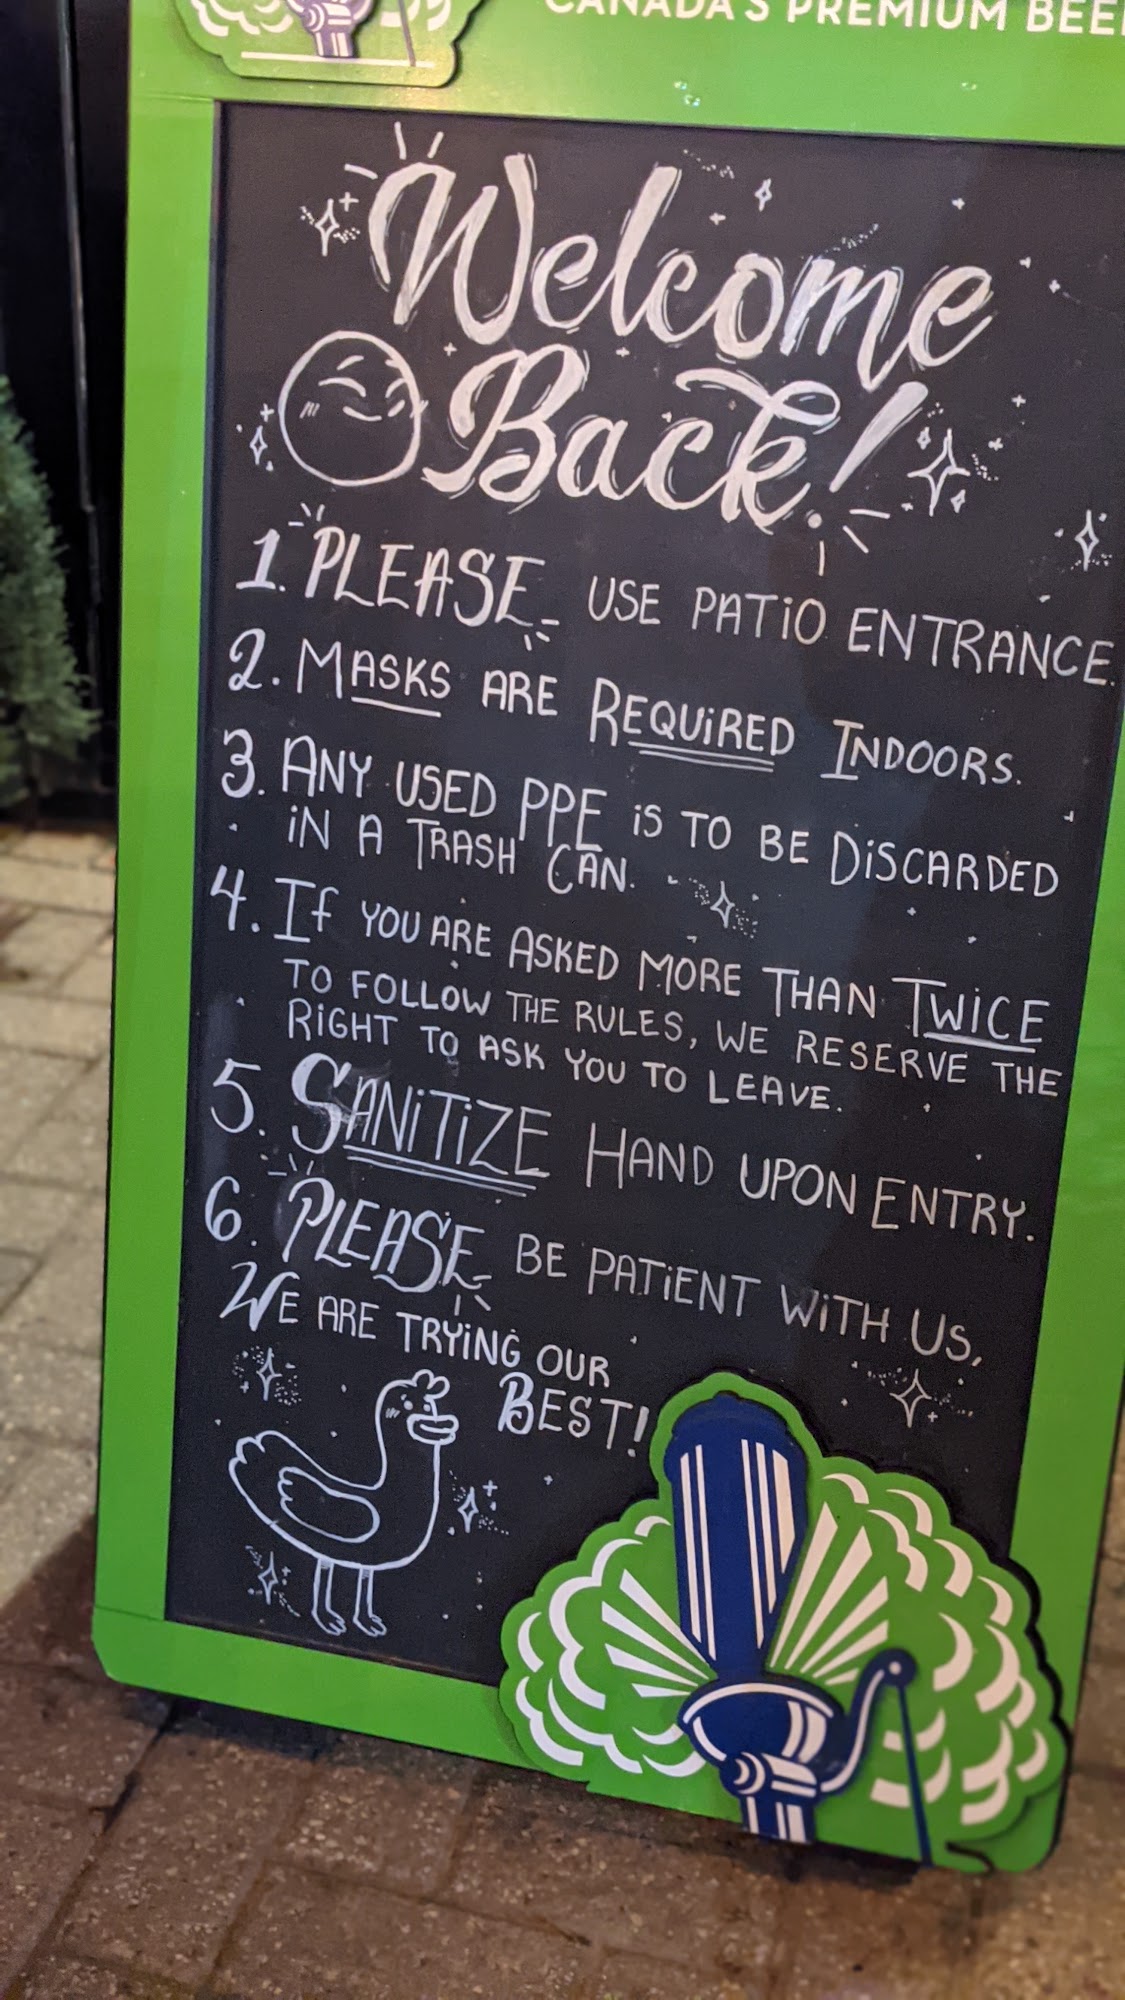 CANADA'S PREMIUM BEER
Welcome
Back!
1. PLEASE USE PATIO ENTRANCE.
2. MASKS ARE REQUIRED INDOORS.
3. ANY USED PPE IS TO BE DISCARDED
IN A TRASH CAN.
4. If YOU ARE ASKED MORE THAN TWICE
TO FOLLOW THE RULES, WE RESERVE THE
RIGHT TO ASK YOU TO LEAVE.
5. SANITIZE HAND UPON ENTRY.
6. PLEASE BE PATIENT WITH US,
WE ARE TRYING OUR
BEST!